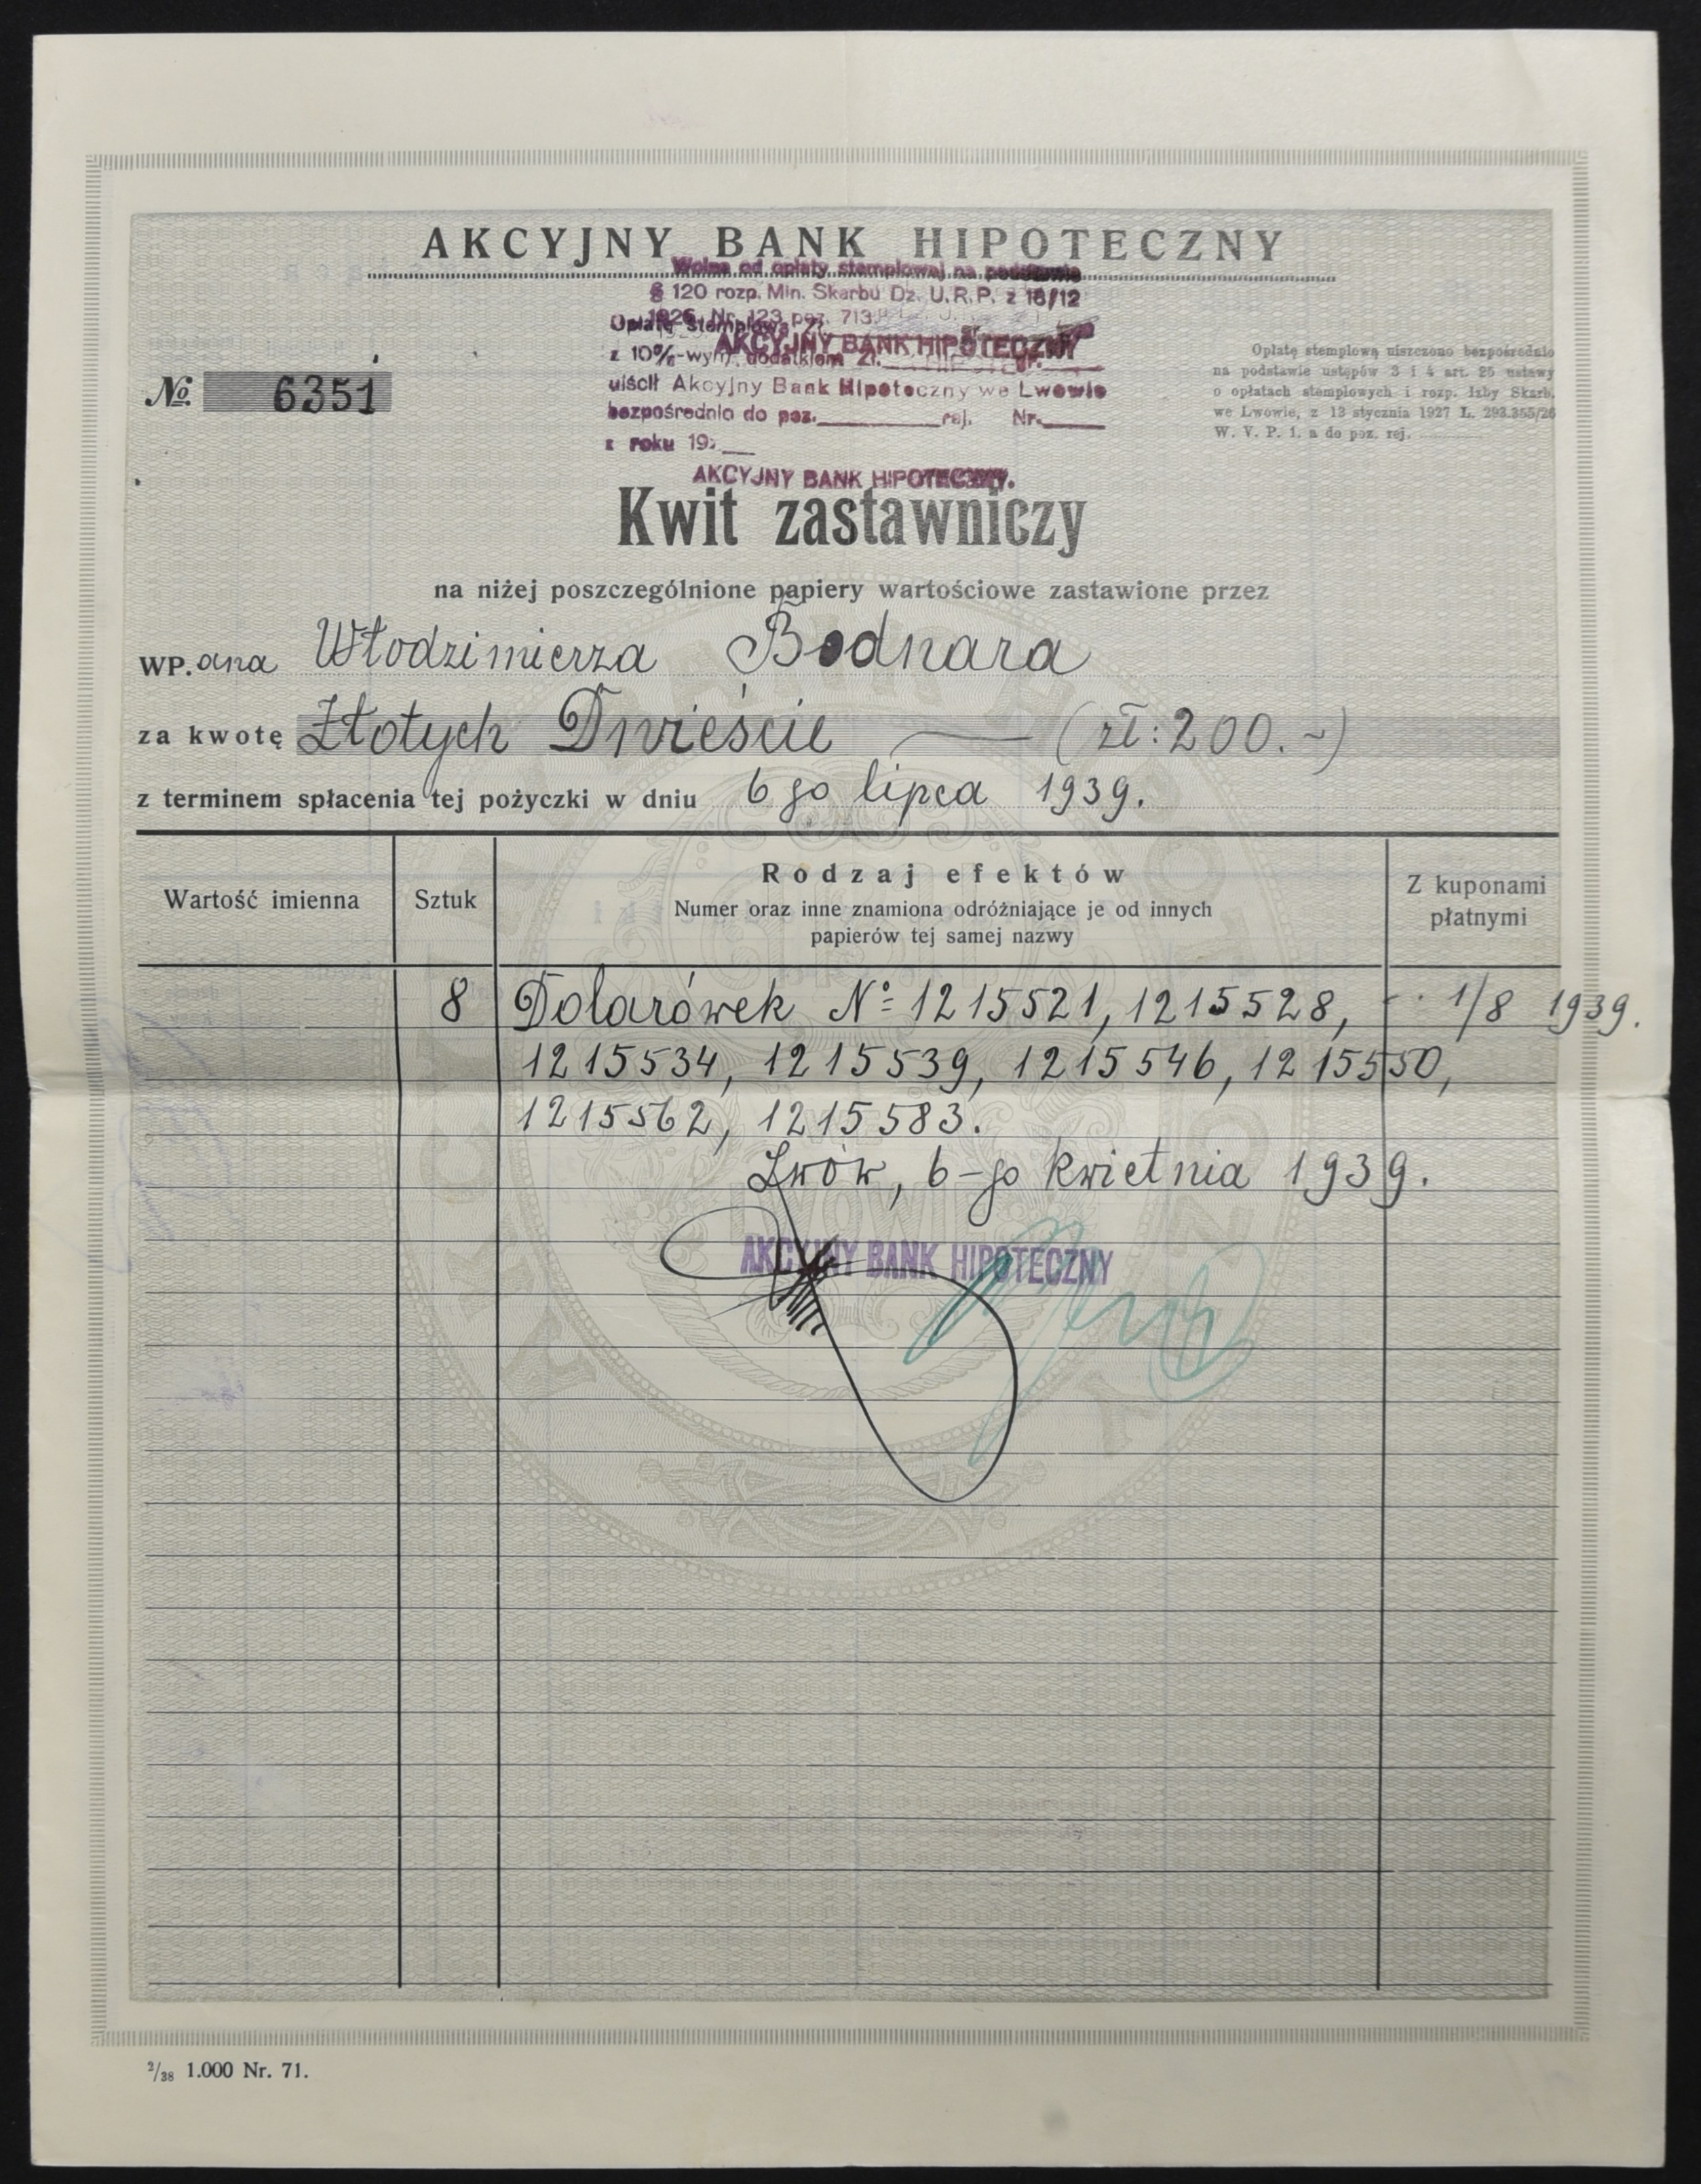 AKCYJNY BANK HIPOTECZNY
Wolne od opłaty stemplowej na podstawie
§ 120 rozp. Min. Skarbu Dz. U. R. P. z 18/12
1926 Nr. 123 poz. 713
Opłatę stemplową Zł.
AKCYJNY BANK HIPOTECZNY
z 10%-wym dodatkiem Zł. gr.
uiścił Akcyjny Bank Hipoteczny we Lwowie
bezpośrednio do poz. rej. Nr.
z roku 19
AKCYJNY BANK HIPOTECZNY.
Opłatę stemplową uiszczono bezpośrednio
na podstawie ustępów 3 i 4 art. 25 ustawy
o opłatach stemplowych i rozp. Izby Skarb.
we Lwowie, z 13 stycznia 1927 L. 293.355/26
W. V. P. i. a do poz. rej.
№ 6351
Kwit zastawniczy
na niżej poszczególnione papiery wartościowe zastawione przez
WP. ana Włodzimierza Bodnara
za kwotę Złotych Dwieście (zł: 200.~)
z terminem spłacenia tej pożyczki w dniu 6 go lipca 1939.
Wartość imienna
Sztuk
Rodzaj efektów
Numer oraz inne znamiona odróżniające je od innych
papierów tej samej nazwy
Z kuponami
płatnymi
8 Dolarówek № 1215521, 1215528, 1/8 1939.
1215534, 1215539, 1215546, 1215550,
1215562, 1215583.
Lwów, 6-go kwietnia 1939.
AKCYJNY BANK HIPOTECZNY
2/38 1.000 Nr. 71.